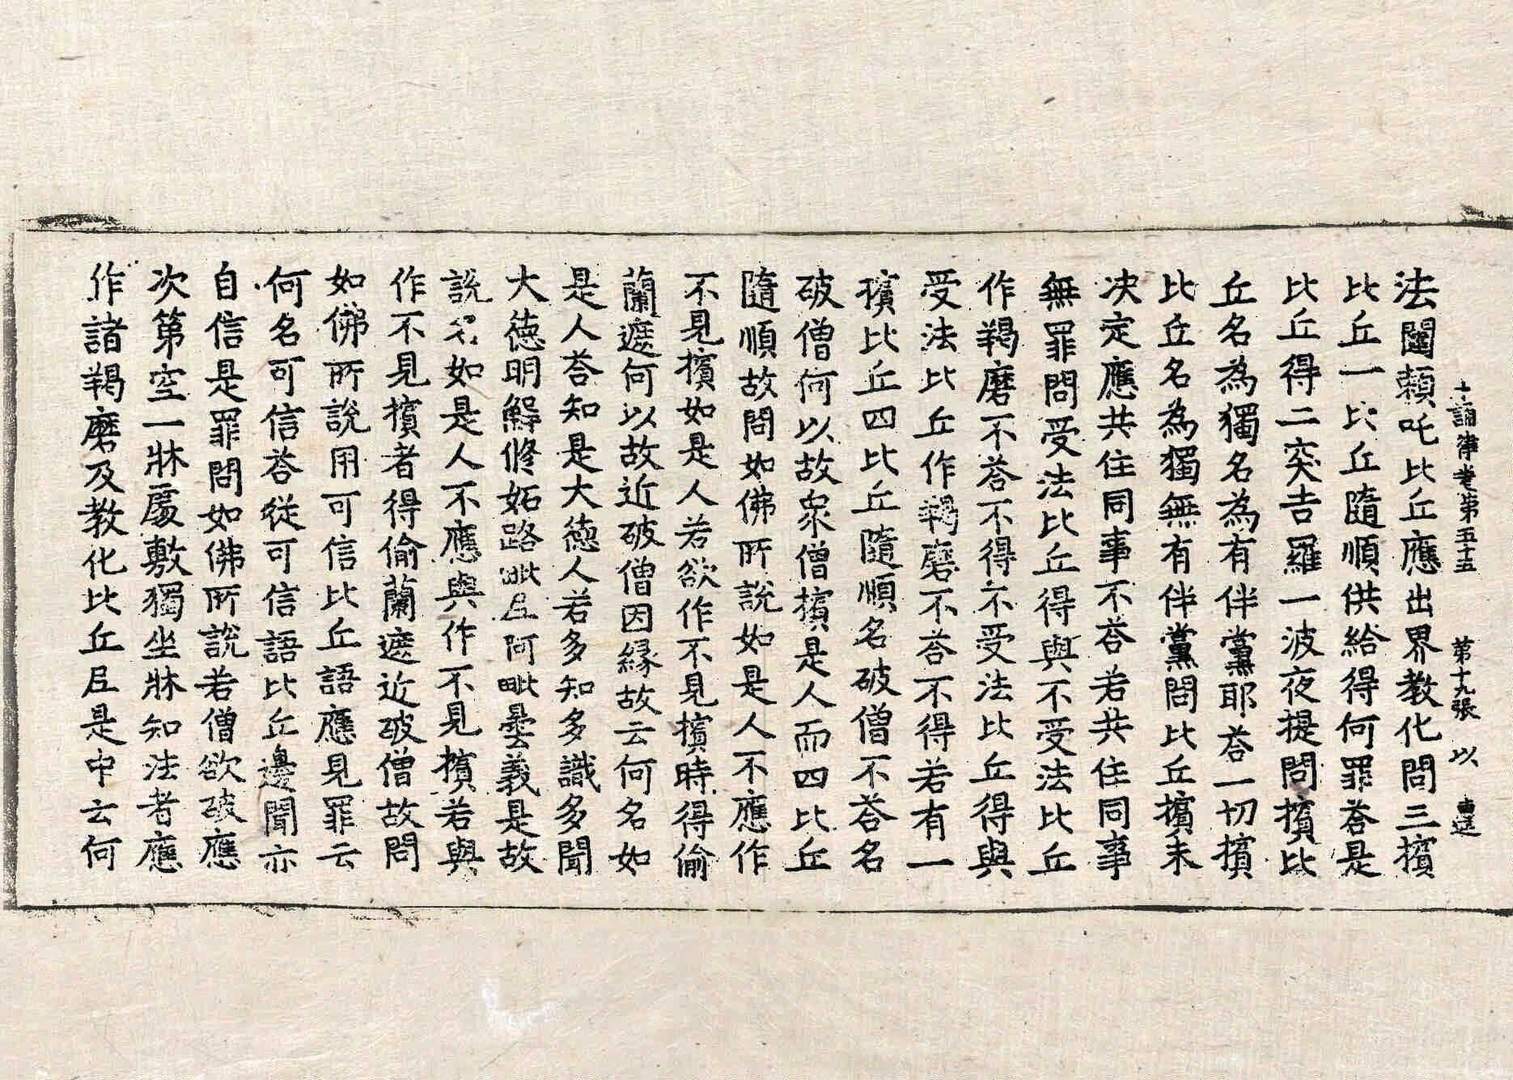 十誦律卷第五十五 第十九張 以
法闥賴吒比丘應出界教化問三擯
比丘一比丘隨順供給得何罪荅是
比丘得二突吉羅一波夜提問擯比
丘名為獨名為有伴黨耶荅一切擯
比丘名為獨無有伴黨問比丘擯未
决定應共住同事不荅若共住同事
無罪問受法比丘得與不受法比丘
作羯磨不荅不得不受法比丘得與
受法比丘作羯磨不荅不得若有一
擯比丘四比丘隨順名破僧不荅名
破僧何以故衆僧擯是人而四比丘
隨順故問如佛所說如是人不應作
不見擯如是人若欲作不見擯時得偷
蘭遮何以故近破僧因緣故云何名如
是人荅知是大德人若多知多識多聞
大德明解修妬路毗尼阿毗曇義是故
說名如是人不應與作不見擯若與
作不見擯者得偷蘭遮近破僧故問
如佛所說用可信比丘語應見罪云
何名可信荅從可信語比丘邊聞亦
自信是罪問如佛所說若僧欲破應
次第空一牀處敷獨坐牀知法者應
作諸羯磨及教化比丘尼是中云何